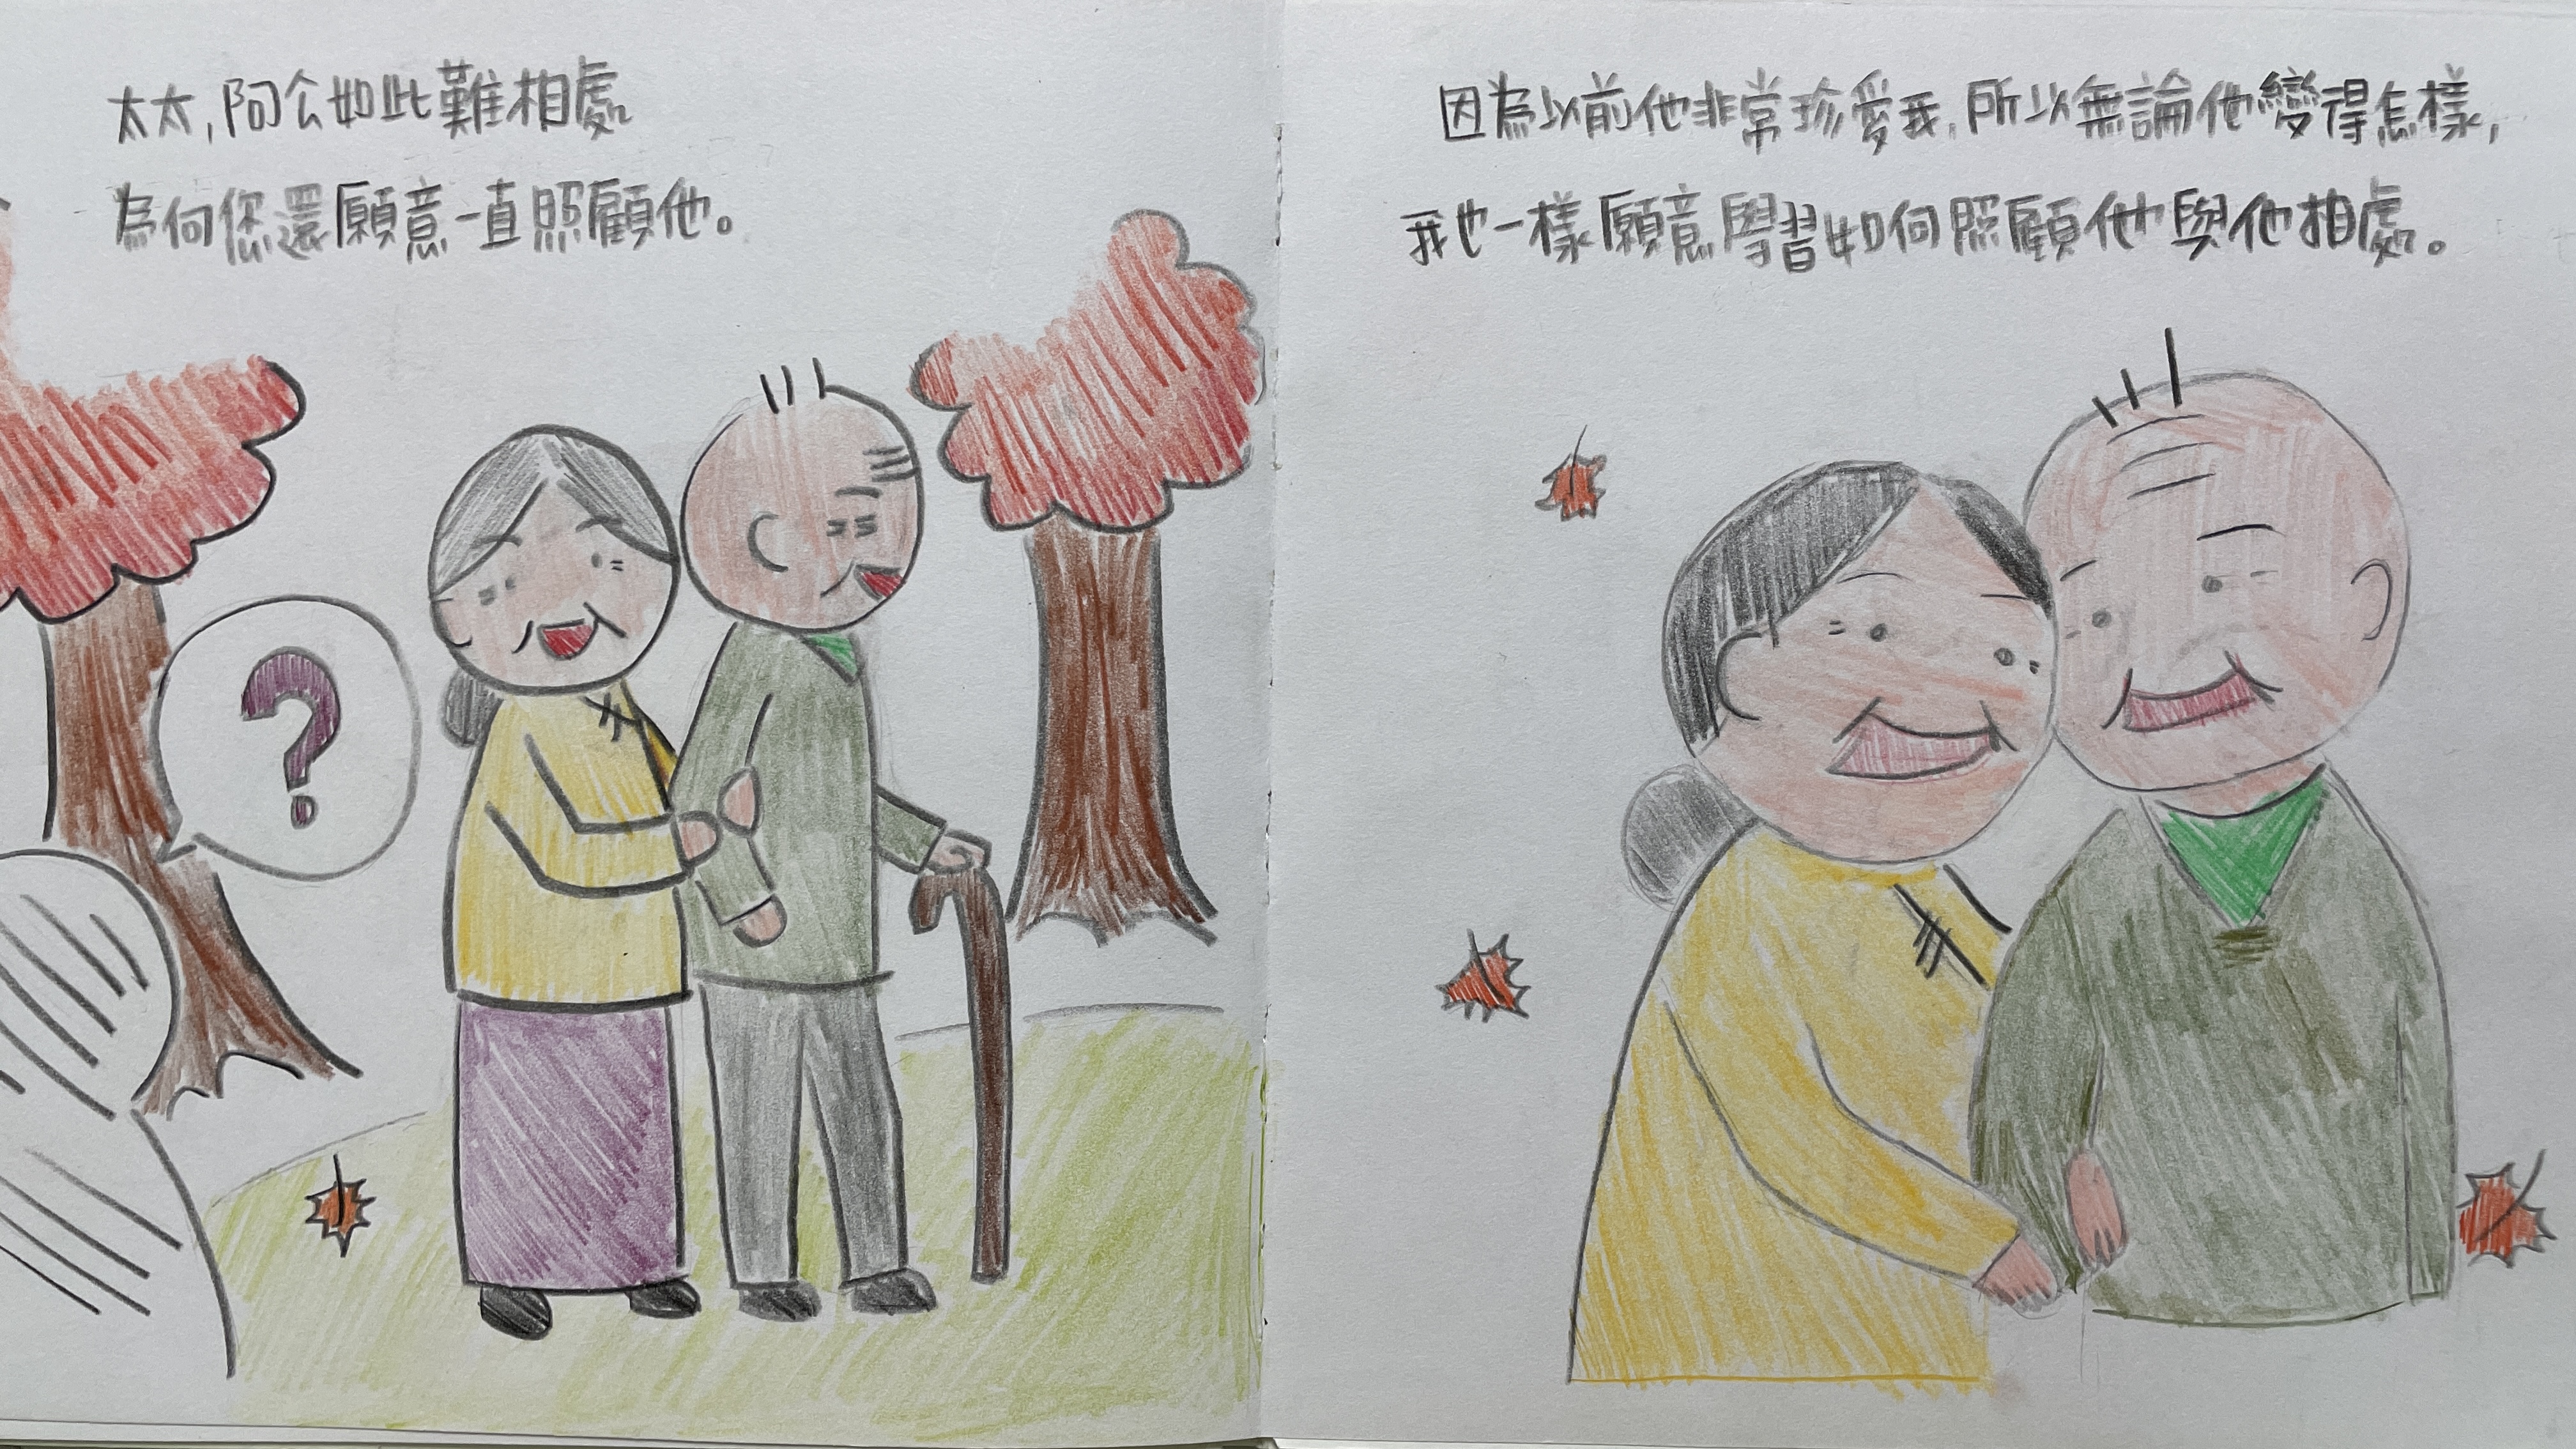 太太,阿公如此難相處
為何您還願意一直照顧他。
?
因為以前他非常珍愛我,所以無論他變得怎樣,
我也一樣願意學習如何照顧他與他相處。